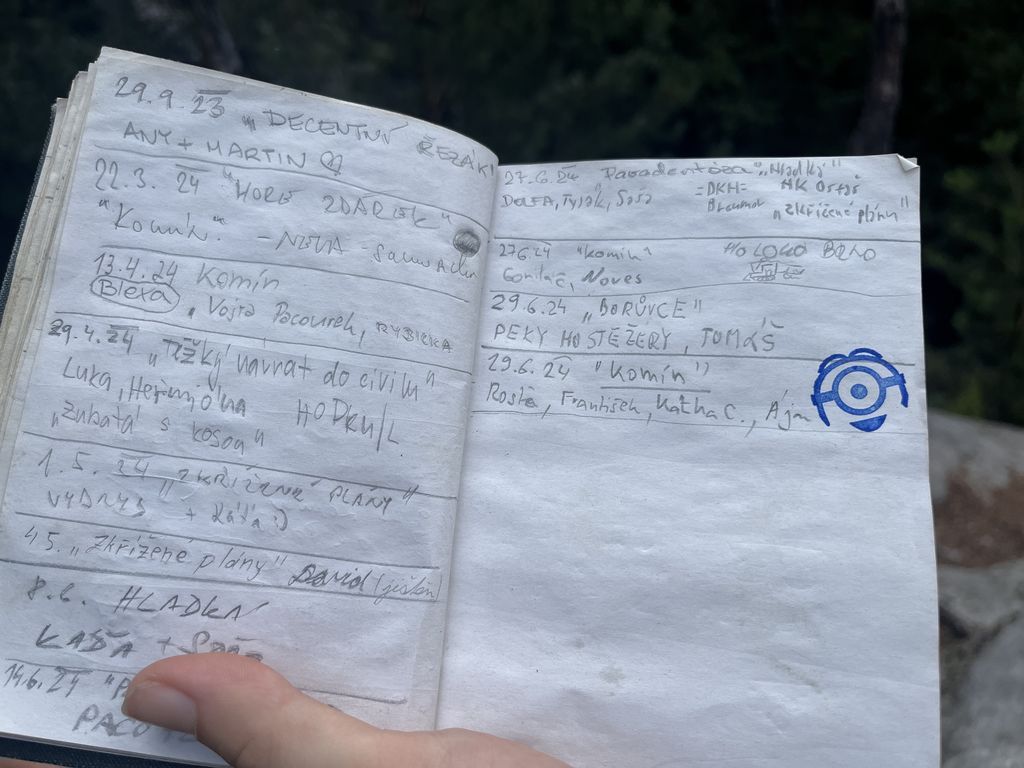 29.9.23 „DECENTNÍ ŘEZÁK"
ANY + MARTIN
22.3. 24 "HORE ZDAR"
"Komín" - NOVA -
13.4.24 Komín
Blexa, Vojta Pacourek, RYBIČKA
29.4.24 „Těžký návrat do civilu"
Luka, Heřmjóna HOPKU/L
„Zubatá s kosou"
1.5. 24 „ZKŘÍŽENÉ PLÁNY"
VYDRYS + Káťa :)
4.5. „Zkřížené plány" David
8.6. HLADKÁ
KAŠA +
14.6.24
27.6.24 „Hladká"
=DKH= HK Ostaš
Broumov „zkřížené plány"
27.6.24 "komín" HO LOKO BRNO
Goniláč, Noves
29.6.24 „BORŮVCE"
PEKY HOSTĚŽERY, TOMÁŠ
29.6.24 "Komín"
Rosťa, František, Katka C., Ája